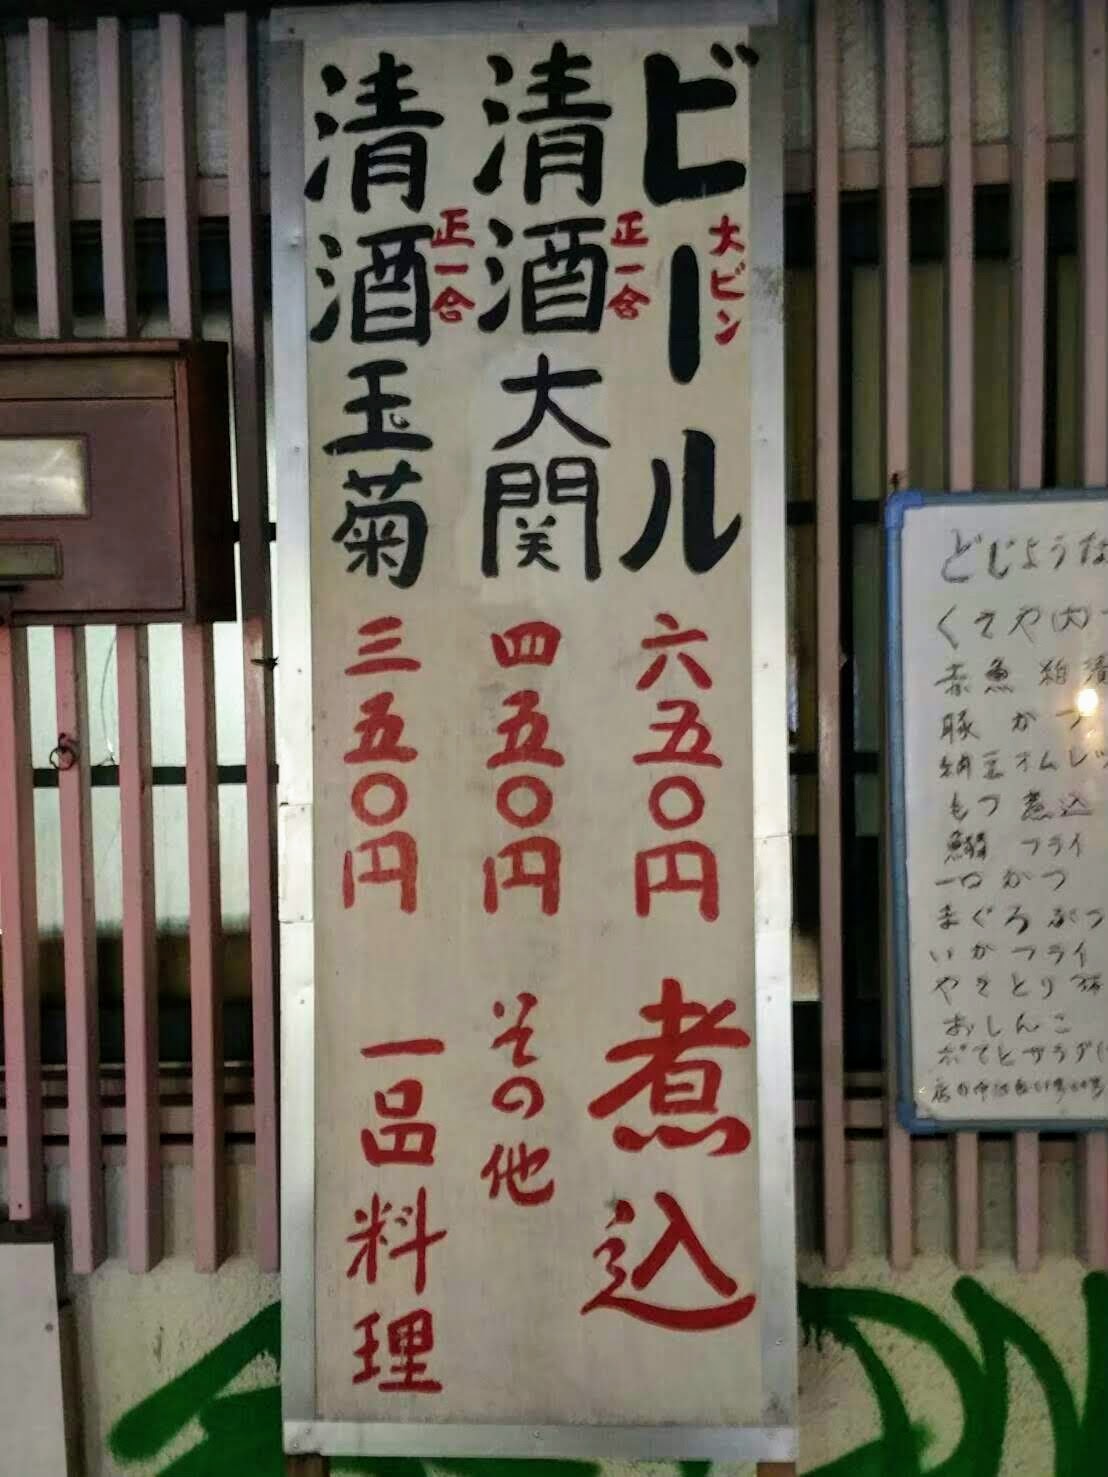 ビール 大ビン 六五〇円 煮込
清酒 正一合 大関 四五〇円 その他
清酒 正一合 玉菊 三五〇円 一品料理
どじょうな
くさや(内)
赤魚 粕漬
豚 かつ
納豆オムレツ
もつ煮込
フライ
一口かつ
まぐろぶつ
いかフライ
やきとり
おしんこ
ポテトサラダ